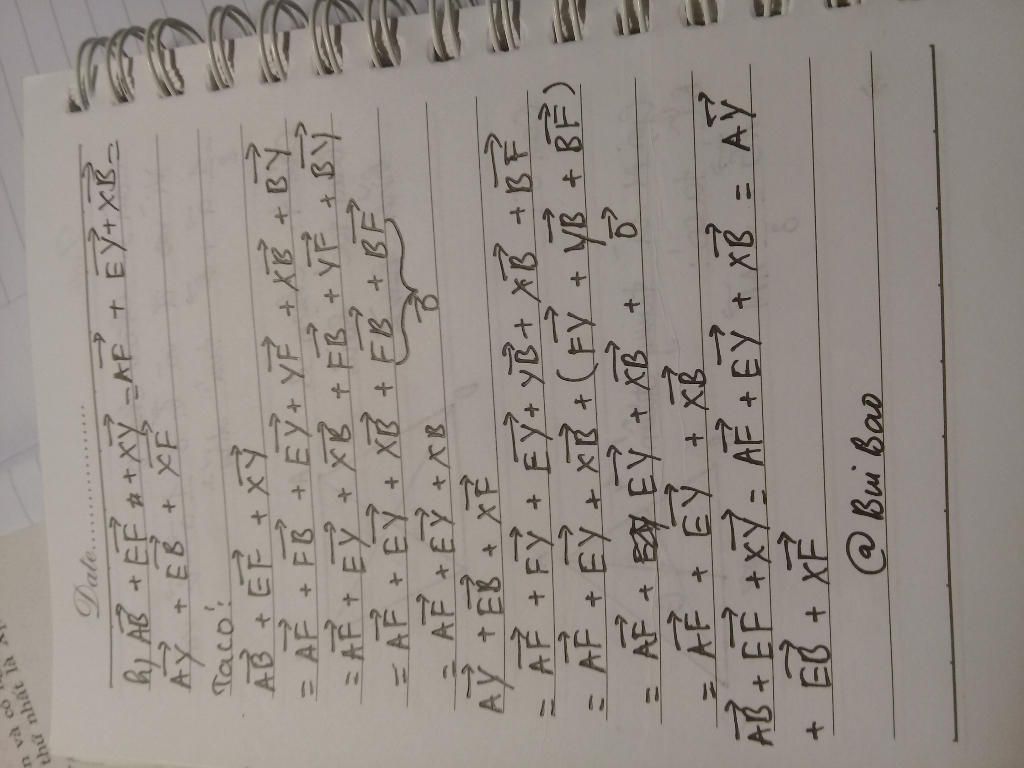 Date......................
b) $\overrightarrow{AB} + \overrightarrow{EF} + \overrightarrow{XY} = \overrightarrow{AF} + \overrightarrow{EY} + \overrightarrow{XB} =$
$\overrightarrow{AY} + \overrightarrow{EB} + \overrightarrow{XF}$
Ta có:
$\overrightarrow{AB} + \overrightarrow{EF} + \overrightarrow{XY}$
$= \overrightarrow{AF} + \overrightarrow{FB} + \overrightarrow{EY} + \overrightarrow{YF} + \overrightarrow{XB} + \overrightarrow{BY}$
$= \overrightarrow{AF} + \overrightarrow{EY} + \overrightarrow{XB} + \overrightarrow{FB} + \overrightarrow{YF} + \overrightarrow{BY}$
$= \overrightarrow{AF} + \overrightarrow{EY} + \overrightarrow{XB} + \overrightarrow{FB} + \overrightarrow{BF}$
$\overrightarrow{0}$
$= \overrightarrow{AF} + \overrightarrow{EY} + \overrightarrow{XB}$
$\overrightarrow{AY} + \overrightarrow{EB} + \overrightarrow{XF}$
$= \overrightarrow{AF} + \overrightarrow{FY} + \overrightarrow{EY} + \overrightarrow{YB} + \overrightarrow{XB} + \overrightarrow{BF}$
$= \overrightarrow{AF} + \overrightarrow{EY} + \overrightarrow{XB} + (\overrightarrow{FY} + \overrightarrow{YB} + \overrightarrow{BF})$
$= \overrightarrow{AF} + \overrightarrow{EY} + \overrightarrow{XB} + \overrightarrow{0}$
$= \overrightarrow{AF} + \overrightarrow{EY} + \overrightarrow{XB}$
$\overrightarrow{AB} + \overrightarrow{EF} + \overrightarrow{XY} = \overrightarrow{AF} + \overrightarrow{EY} + \overrightarrow{XB} = \overrightarrow{AY}$
$+ \overrightarrow{EB} + \overrightarrow{XF}$
@ Bui Bao